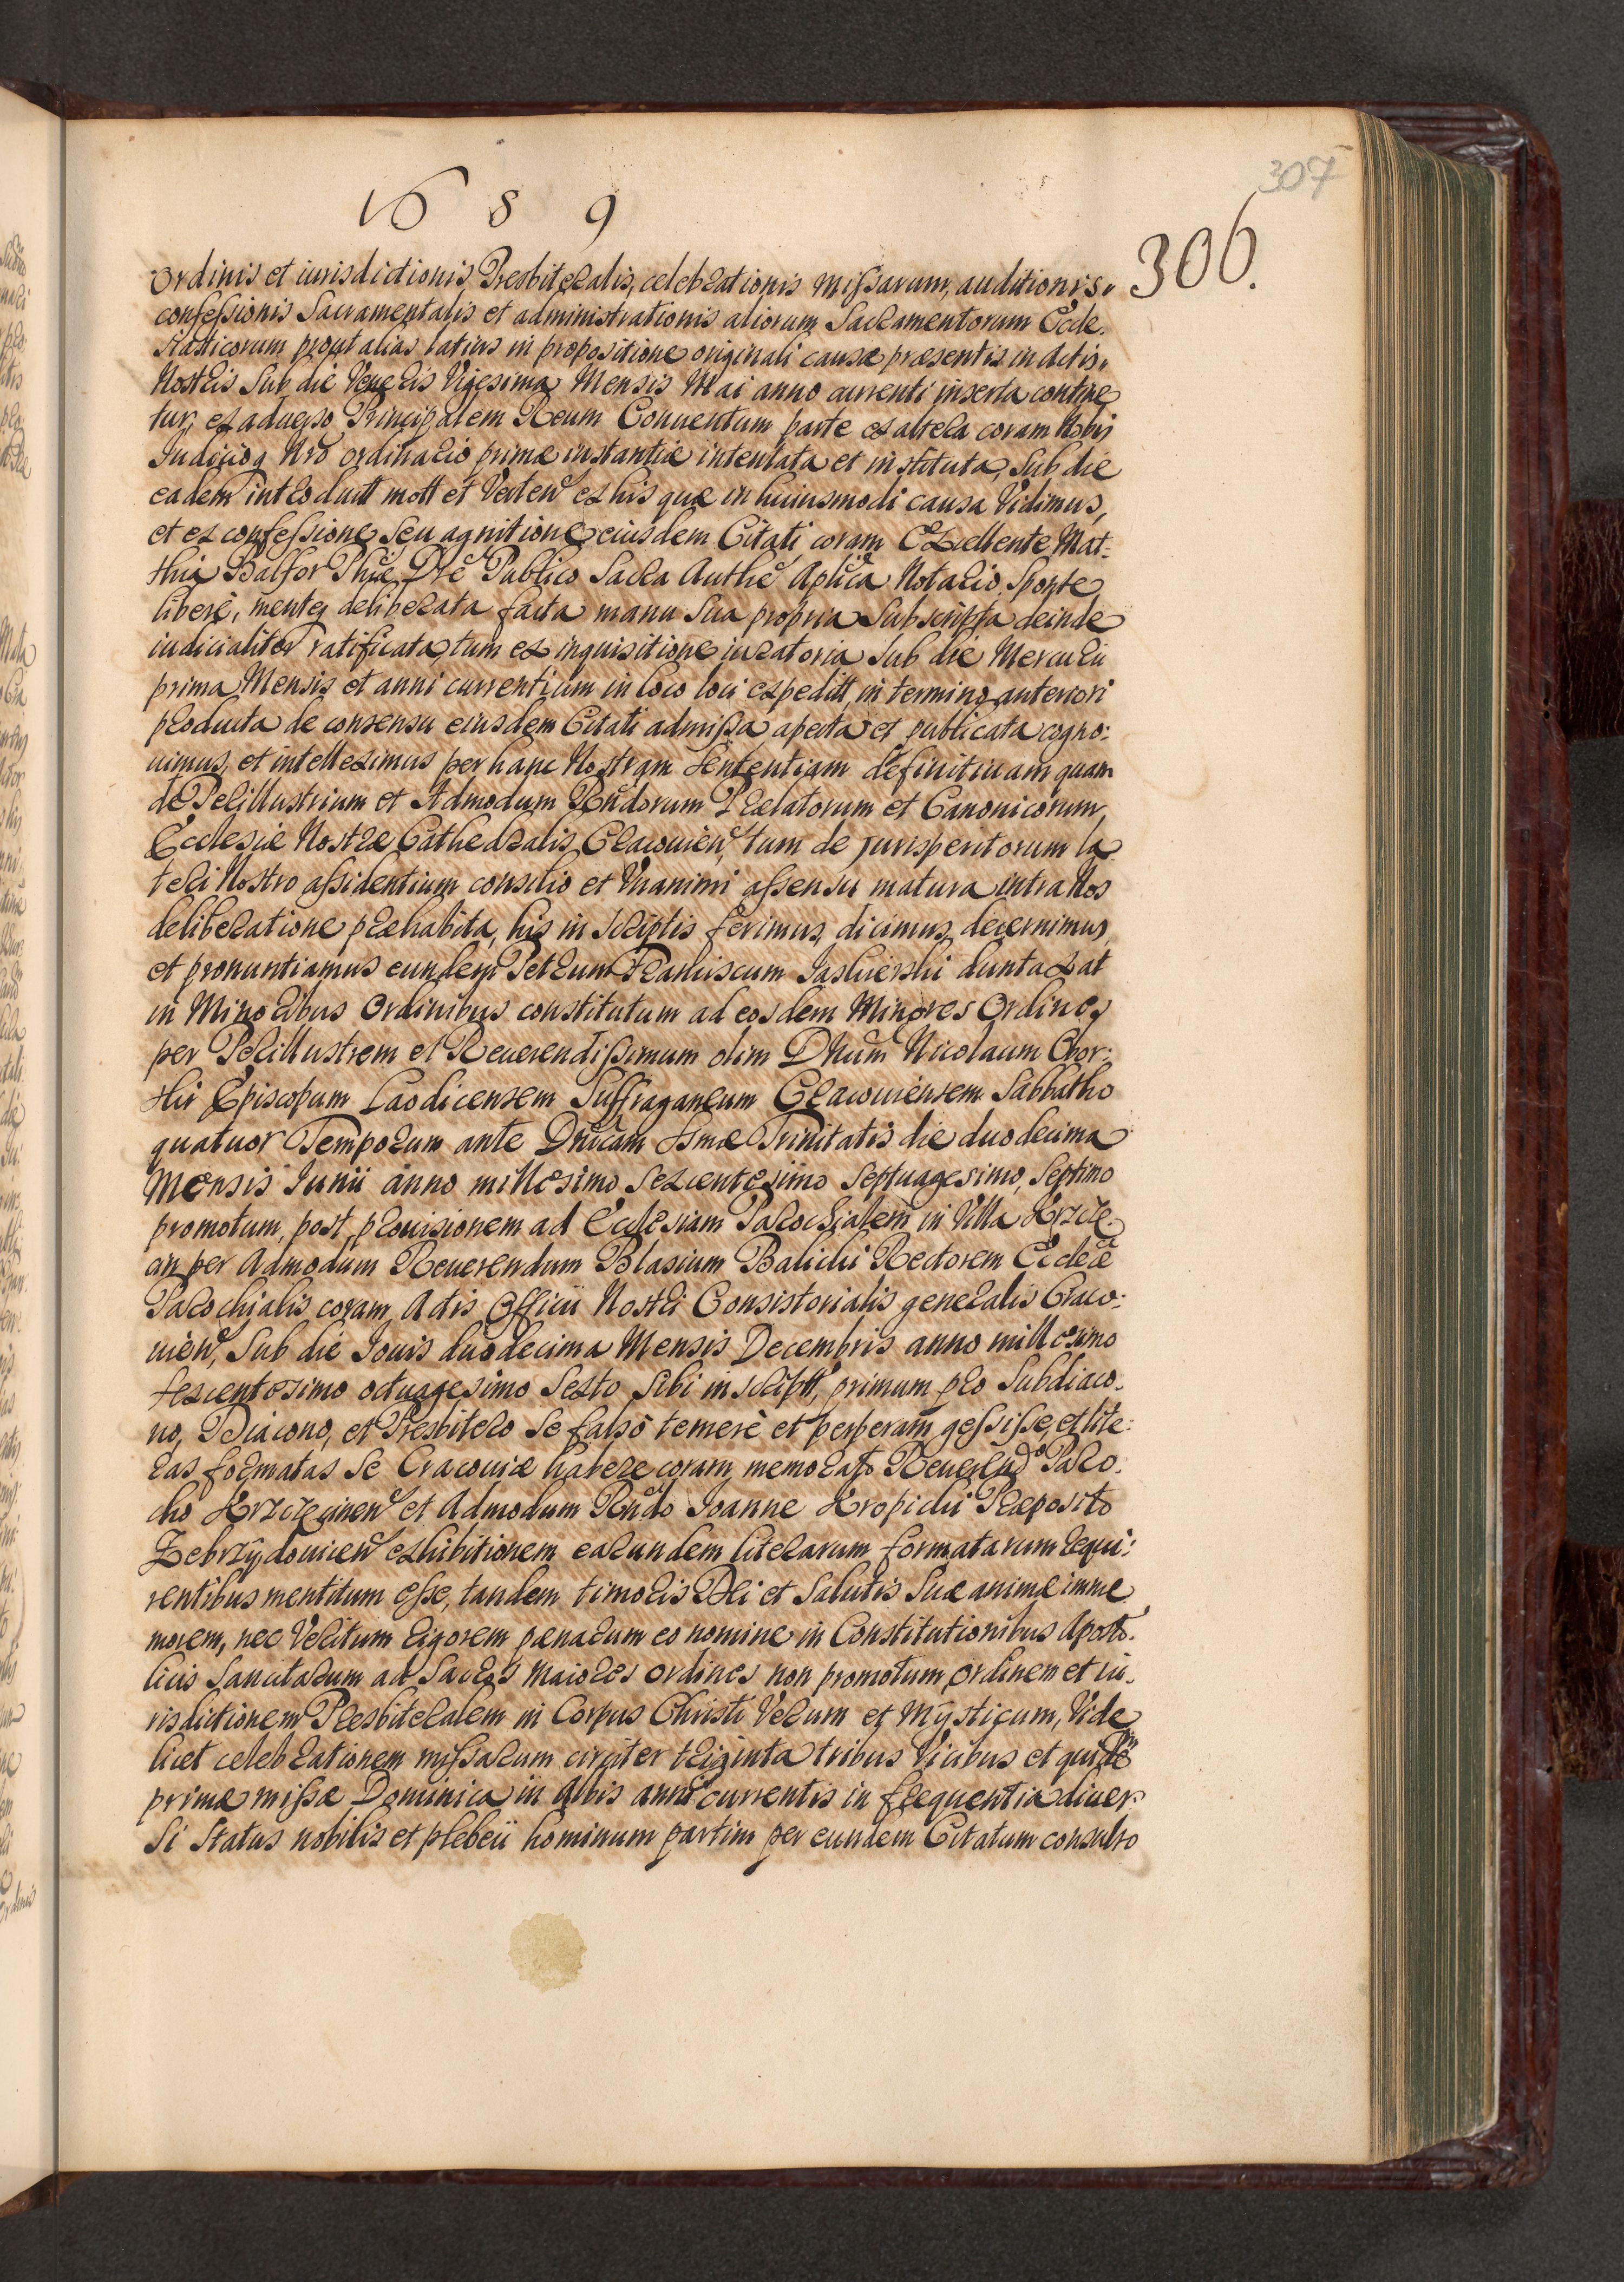 307
1689
306.
Ordinis et iurisdictionis Presbiteralis, celebrationis missarum, auditionis
confessionis Sacramentalis et administrationis aliorum Sacramentorum Eccle.
siasticorum prout alias latius in propositione originali causæ præsentis in Actis
Nostris Sub die Veneris Vigesima Mensis Mai anno currenti inserta contine
tur, ex aduerso Principalem Reum Conuentum parte ex altera coram Nobis
Iudicioq Nrõ ordinario primæ instantiæ intentata et instituta, Sub die
eadem introductt mott et Verten ex his quæ in huiusmodi causa Vidimus,
et ex confessione seu agnitione eiusdem Citati coram Excellente Mat:
thia Balfor Phiæ Dre Publico Sacra Authe Aplica Notario, Sponte
libere, menteq deliberata facta manu Sua propria Subscripta deinde
iudicialiter ratificata, tum ex inquisitione iuratoria Sub die Mercurii
prima Mensis et anni currentium in loco loci expeditt, in termino anteriori
producta de consensu eiusdem Citati admissa aperta et publicata cogno:
uimus, et intelleximus per hanc Nostram Sententiam definitiuam quam
de Perillustrium et Admodum Rndorum Prælatorum et Canonicorum
Ecclesiæ Nostræ Cathedralis Cracouien, tum de Jurisperitorum la
teri Nostro assidentium consilio et Vnanimi assensu matura intra Nos
deliberatione præhabita, his in scriptis ferimus, dicimus, decernimus,
et pronuntiamus eundem Petrum Franciscum Jaskierski duntaxat
in Minoribus Ordinibus constitutum ad eosdem Minores Ordines
per Perillustrem et Reuerendissimum olim Dnum Nicolaum Obor:
ski Episcopum Laodicensem Suffraganeum Cracouiensem Sabbatho
quatuor Temporum ante Dnicam Ssmæ Trinitatis die duodecima
Mensis Iunii anno millesimo Sexcentesimo Septuagesimo, Septimo
promotum, post prouisionem ad Ecclesiam Parochialem in Villa Krzcie.
cin per Admodum Reuerendum Blasium Balicki Rectorem Eccleæ
Parochialis coram Actis Officii Nostri Consistorialis generalis Craco:
uien, Sub die Iouis duodecima Mensis Decembris anno millesimo
sexcentesimo octuagesimo Sexto Sibi in scriptt, primum pro Subdiaco.
no, Diacono, et Presbitero Se falso temere et perperam gessisse, et lite:
ras formatas Se Cracouiæ habere coram memorato Reuerendo Paro.
cho Krzcięcinen et Admodum Rndo Ioanne Kropicki Præposito
Zebrzydouien exhibitionem earundem literarum formatarum requi:
rentibus mentitum esse, tandem timoris Dei et Salutis Suæ animæ imme
morem, nec Veritum rigorem pænarum eo nomine in Constitutionibus Aposto.
licis Sancitarum ad Sacros maiores ordines non promotum, ordinem et iu.
risdictionem Presbiteralem in Corpus Christi Verum et Mysticum, Vide
licet celebrationem missarum circiter triginta tribus Vicibus et quidem
primæ missæ Dominica in Albis anni currentis in frequentia diuer
si Status nobilis et plebeii hominum partim per eundem Citatum consulto